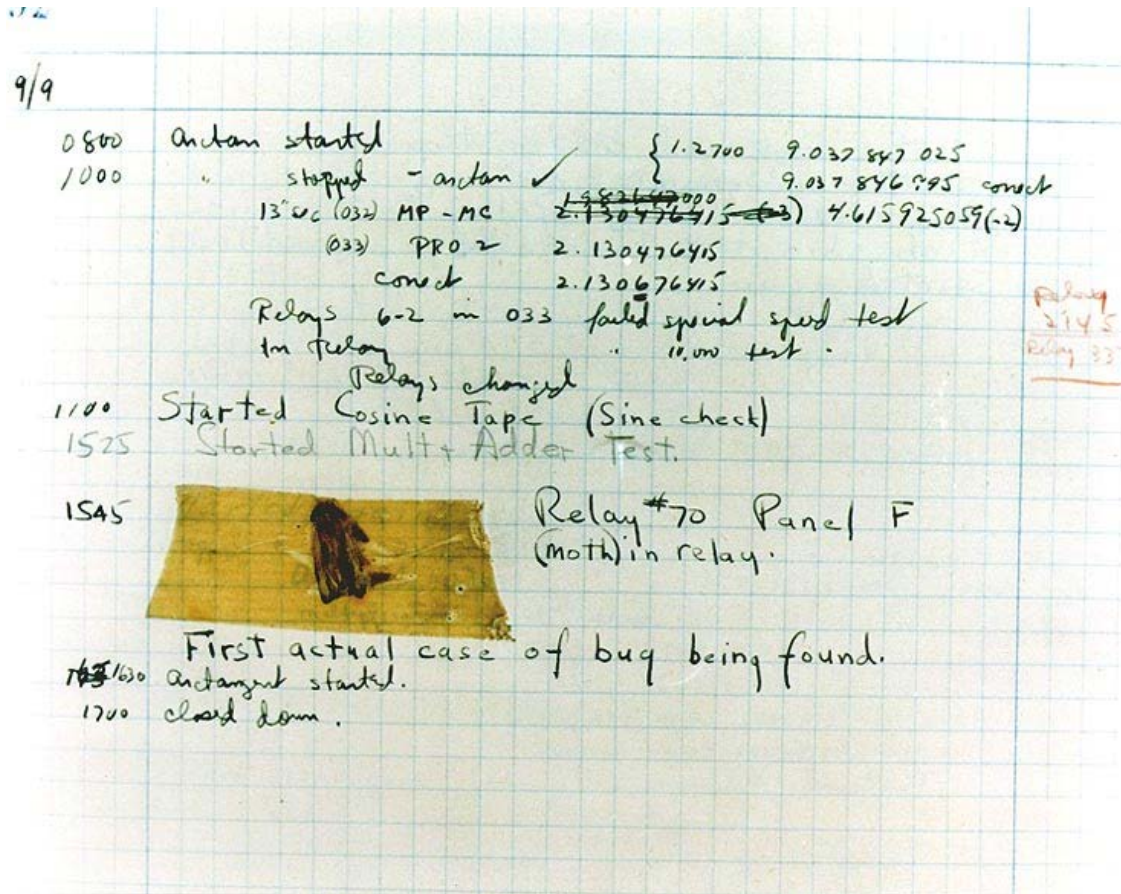 9/9
0800 arctan started { 1.2700 9.037 847 025
1000 " stopped - arctan ✓ 9.037 846 795 correct
13"sec (032) MP - MC 2.130476415 (-3) 4.615925059(-2)
(033) PRO 2 2.130476415
correct 2.130676415
Relays 6-2 in 033 failed special speed test
In Relay " 10,000 test .
Relays changed
Relay
2145
Relay 33
1100 Started Cosine Tape (Sine check)
1525 Started Mult + Adder Test.
1545 Relay #70 Panel F
(moth) in relay.
First actual case of bug being found.
1630 arctangent started.
1700 closed down .